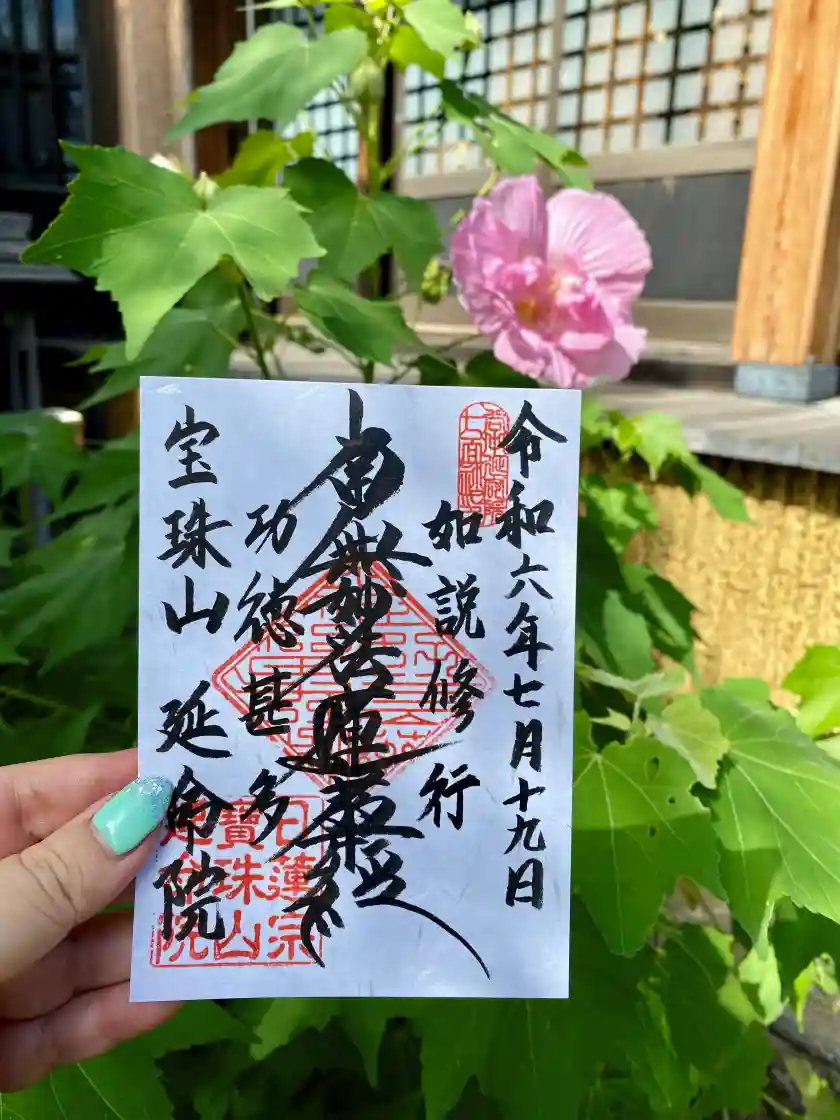 令和六年七月十九日
如説修行
南無妙法蓮華経
功徳甚多
宝珠山 延命院
日蓮宗
寶珠山
延命院